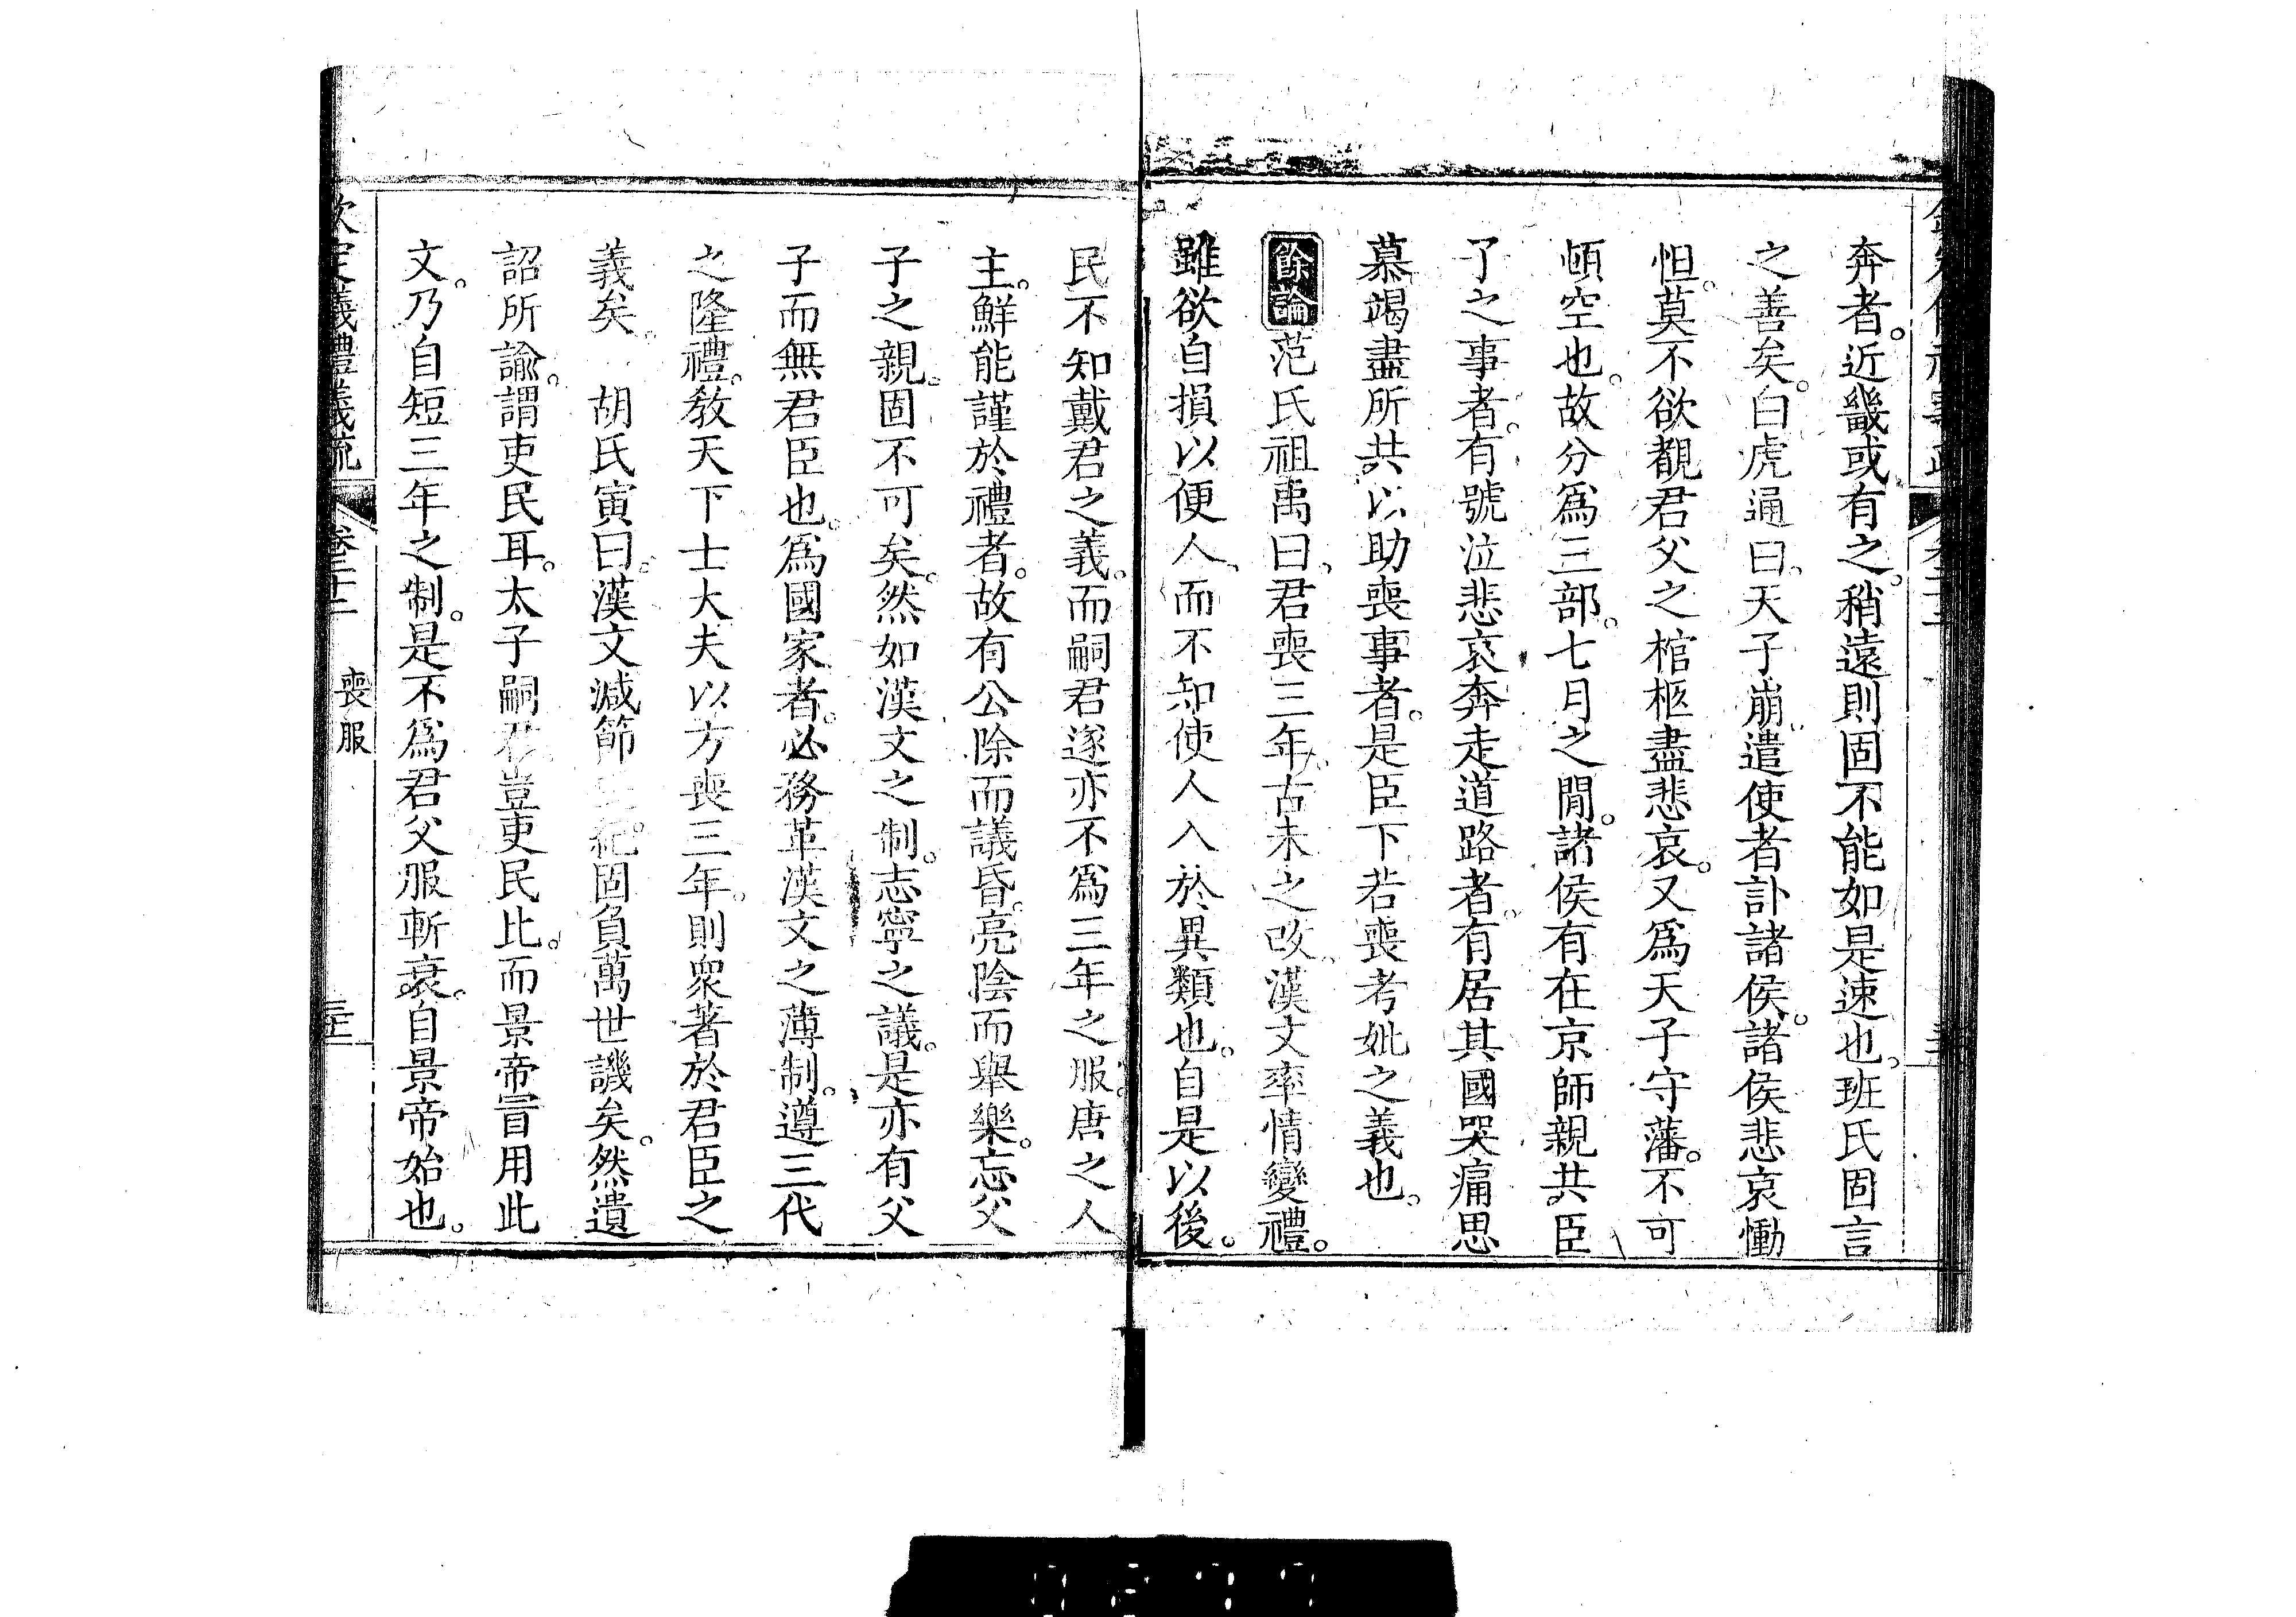 奔者。近畿或有之。稍遠則固不能如是速也。班氏固言
之善矣。白虎通曰、天子崩、遣使者訃諸侯。諸侯悲哀慟
怛。莫不欲覩君父之棺柩盡悲哀。又爲天子守藩。不可
頓空也。故分爲三部。七月之閒。諸侯有在京師親共臣
子之事者。有號泣悲哀奔走道路者。有居其國哭痛思
慕竭盡所共以助喪事者。是臣下若喪考妣之義也。
餘論范氏祖禹曰、君喪三年、古未之改、漢文率情變禮。
雖欲自損以便人、而不知使人入於異類也。自是以後。
民不知戴君之義。而嗣君遂亦不爲三年之服。唐之人
主。鮮能謹於禮者。故有公除而議昏。亮陰而舉樂。忘父
子之親。固不可矣。然如漢文之制。志寧之議。是亦有父
子而無君臣也。爲國家者。必務革漢文之薄制。遵三代
之隆禮。教天下士大夫以方喪三年。則衆著於君臣之
義矣。 胡氏寅曰。漢文減節 紀。固負萬世譏矣。然遺
詔所諭。謂吏民耳。太子嗣君。豈吏民比。而景帝冒用此
文。乃自短三年之制。是不爲君父服斬衰。自景帝始也。
欽定儀禮義疏 卷二十二 喪服